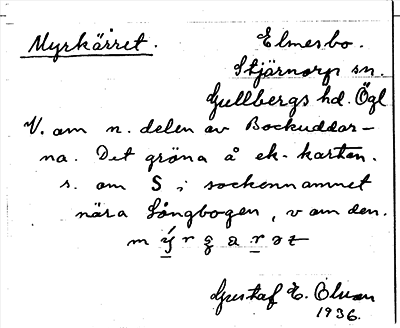 Myrkärret. Elmesbo.
Stjärnorp sn.
Gullbergs hd. Ögl
V. om n. delen av Bockuddar-
na. Det gröna å ek-kartan.
s. om S i sockennamnet
nära Långbogen, v om den.
Gustaf E.
1936.